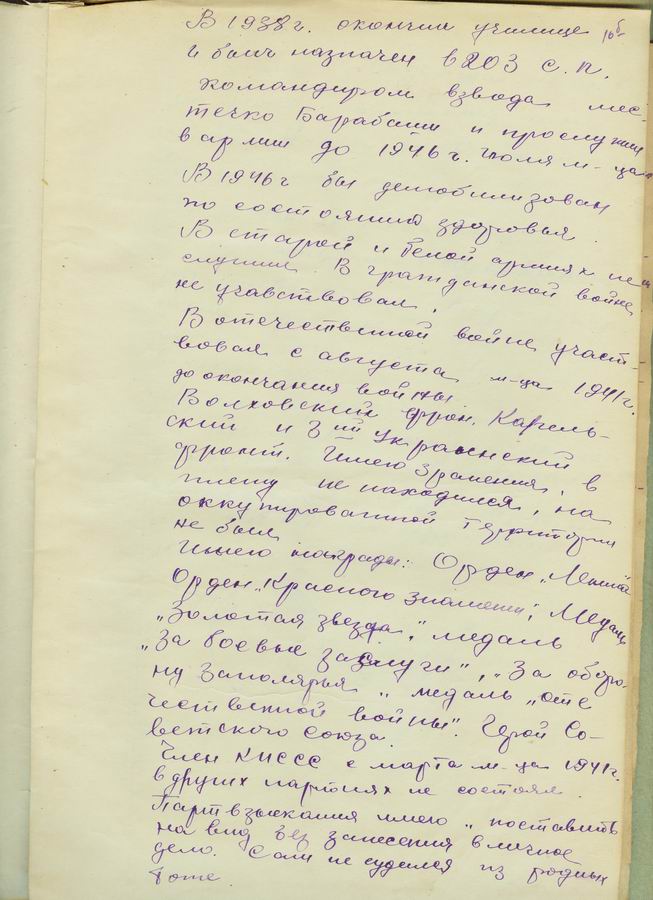 В 1938 г. окончил училище
16
и был назначен в 203 с. п.
командиром взвода мес-
течко Барабаши и прослужил
в армии до 1946 г. июля м-ца
В 1946 г был демобилизован
по состоянию здоровья.
В старой и белой армиях не
служил. В гражданской войне
не учавствовал.
В отечественной войне участ-
вовал с августа м-ца 1941 г.
до окончания войны
Волховский фрон. Карель-
ский и 3ий Украинский
фронт. Имею 3 ранения, в
плену не находился, на
оккупированной территории
не был
Имею награды: Орден „Ленина"
Орден „Красного знамени", Медаль
„Золотая звезда", медаль
„За боевые заслуги", „За оборо-
ну Заполярья" медаль „оте
чественной войны". Герой Со-
ветского Союза.
Член КПССС с марта м-ца 1941 г.
в других партиях не состоял.
Партвзыскания имею „поставить
на вид без занесения в личное
дело. Сам не судился из родных
тоже.